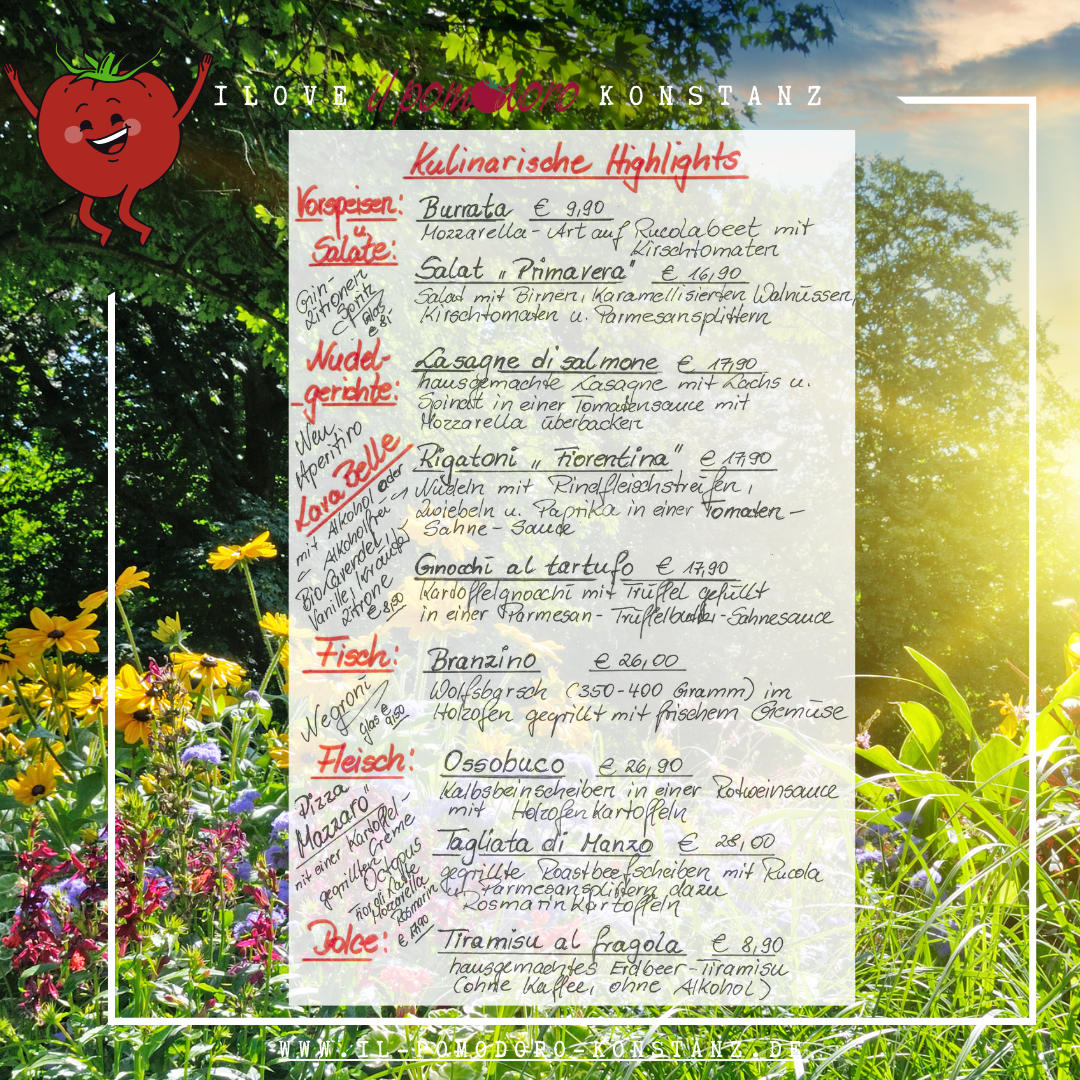 I LOVE il pomodoro KONSTANZ
Kulinarische Highlights
Vorspeisen:
u.
Salate:
Burrata € 9,90
Mozzarella-Art auf Rucolabeet mit
Kirschtomaten
Salat „Primavera" € 16,90
Salat mit Birnen, Karamellisierten Walnüssen,
Kirschtomaten u. Parmesansplittern
Gin-
Zitronen
Spritz
Glas
€ 8,-
Nudel-
gerichte:
Lasagne di salmone € 17,90
hausgemachte Lasagne mit Lachs u.
Spinat in einer Tomatensauce mit
Mozzarella überbacken
Rigatoni „Fiorentina" € 17,90
Nudeln mit Rindfleischstreifen,
Zwiebeln u. Paprika in einer Tomaten-
Sahne-Sauce
Gnocchi al tartufo € 17,90
Kartoffelgnocchi mit Trüffel gefüllt
in einer Parmesan-Trüffelbutter-Sahnesauce
Neu
Aperitivo
Lava Belle
mit Alkohol oder
Alkoholfrei
Bio Lavendel,
Vanille, Krauter
Zitrone
€ 8,50
Fisch:
Branzino € 26,00
Wolfsbarsch (350-400 Gramm) im
Holzofen gegrillt mit frischem Gemüse
Negroni
Glas €
9,50
Fleisch:
Ossobuco € 26,90
Kalbsbeinscheiben in einer Rotweinsauce
mit Holzofenkartoffeln
Tagliata di Manzo € 28,00
gegrillte Roastbeefscheiben mit Rucola
u. Parmesansplittern dazu
Rosmarinkartoffeln
Pizza
Mazzaro"
mit einer Kartoffel-
Creme
gegrillten Octopus
Fior di Latte
Mozzarella
Rosmarin
€ 17,90
Dolce:
Tiramisu al fragola € 8,90
hausgemachtes Erdbeer-Tiramisu
(ohne Kaffee, ohne Alkohol)
WWW.IL-POMODORO-KONSTANZ.DE